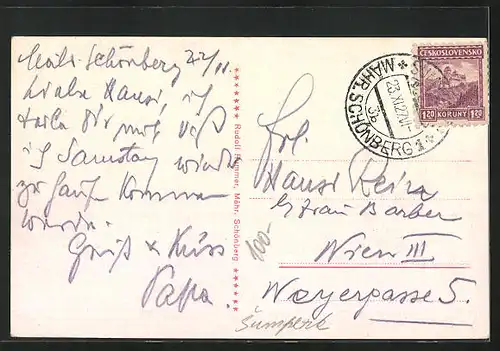 Mähr. Schönberg 22/11.
Liebe Hansi, ich
teile Dir mit daß
ich Samstag wieder
zu Hause kommen
werde.
Gruß & Kuss
Papa.
Mähr. Schönberg
ČESKOSLOVENSKO
1.20 KORUNY 1.20
MÄHR. SCHÖNBERG 1
23.XI.27
3b
Frl.
Hansi
b/ Frau Barber
Wien III
Wayergasse 5.
100-
Šumperk